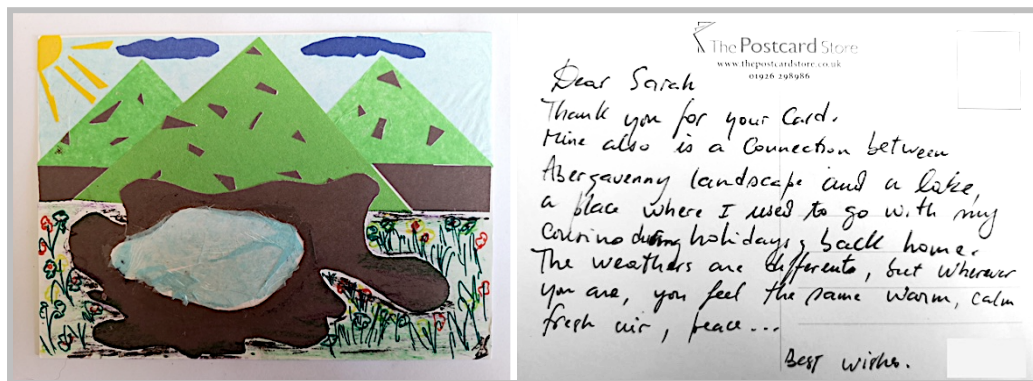 The Postcard Store
www.thepostcardstore.co.uk
01926 298986
Dear Sarah
Thank you for your Card.
Mine also is a Connection between
Abergavenny landscape and a lake,
a place where I used to go with my
cousins during holidays, back home.
The weathers are differents, but wherever
you are, you feel the same warm, calm
fresh air, peace...
Best wishes.